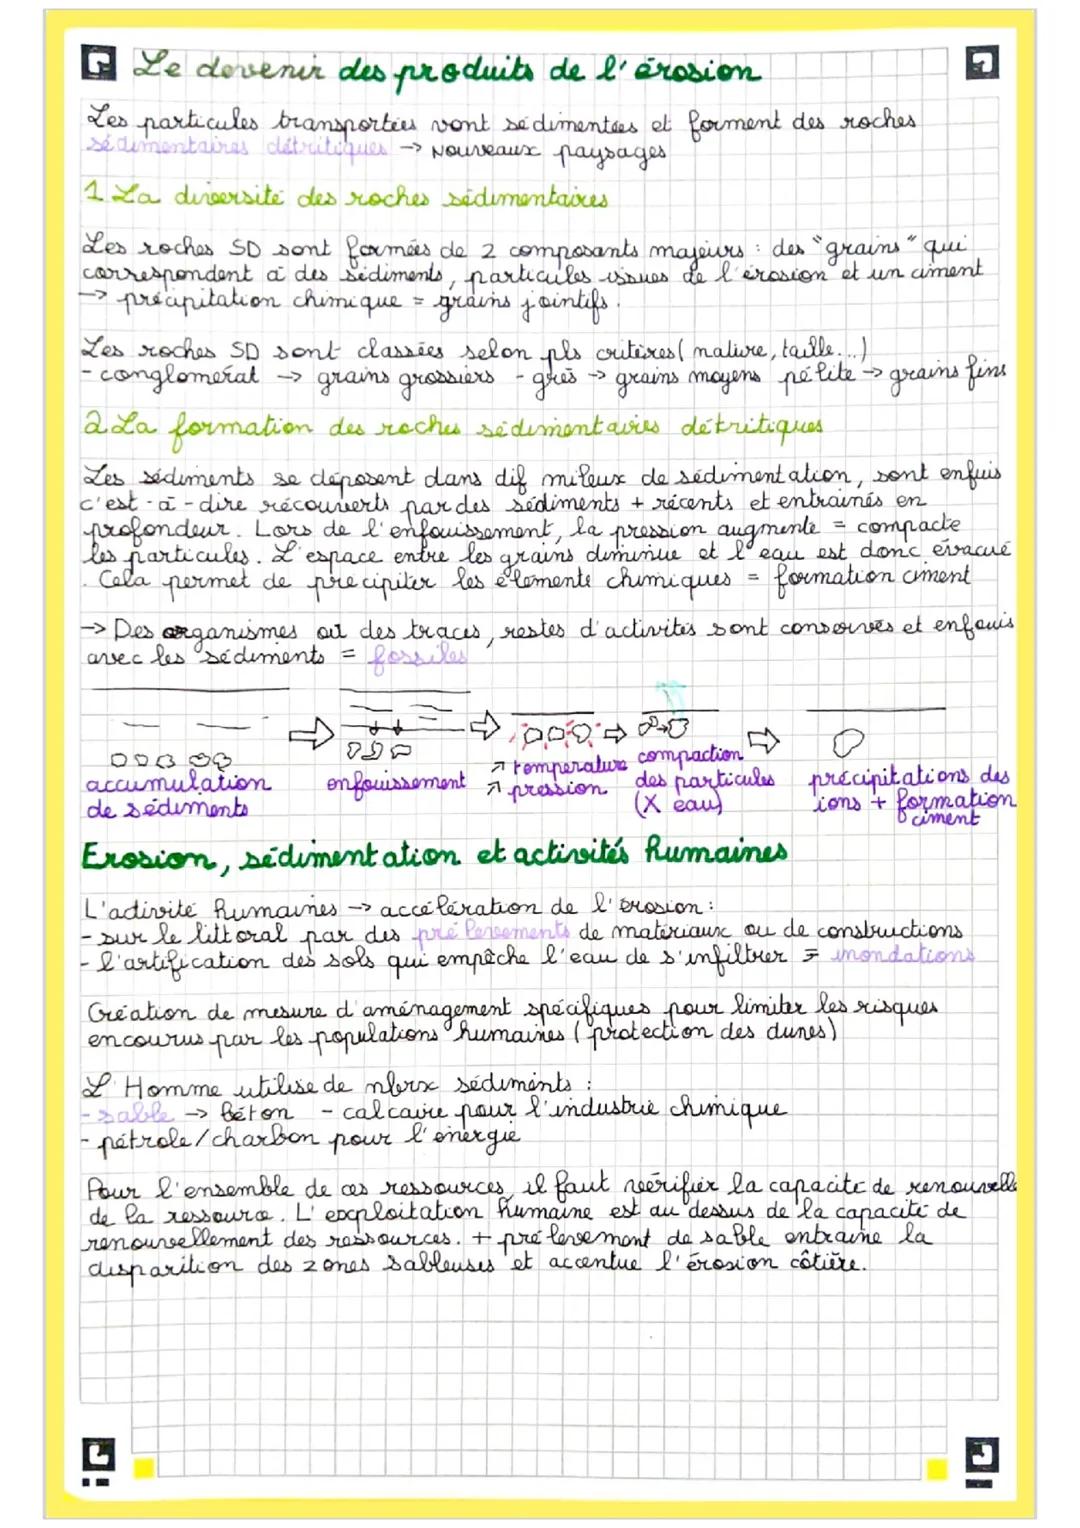 Le devenir des produits de l'érosion
Les particules transportées vont sédimentées et forment des roches
sédimentaires détritiques → Nouveaux paysages
1 La diversité des roches sédimentaires
Les roches SD sont formées de 2 composants majeurs : des "grains" qui
correspondent à des sédiments, particules issues de l'érosion et un ciment
→ précipitation chimique = grains jointifs.
Les roches SD sont classées selon pls critères (nature, taille...)
- conglomérat → grains grossiers - grès → grains moyens pélite → grains fins
2 La formation des roches sédimentaires détritiques
Les sédiments se déposent dans dif milieux de sédimentation, sont enfuis
c'est-à-dire récouverts par des sédiments + récents et entrainés en
profondeur. Lors de l'enfouissement, la pression augmente = compacte
les particules. L'espace entre les grains diminue et l'eau est donc évacué
. Cela permet de précipiter les éléments chimiques = formation ciment
→ Des organismes ou des traces, restes d'activités sont conservés et enfouis
avec les sédiments = fossiles
accumulation
de sédiments
enfouissement
↗ température
↗ pression
compaction
des particules
(X eau)
précipitations des
ions + formation
ciment
Erosion, sédimentation et activités humaines
L'adivité humaines → accélération de l'érosion :
- sur le littoral par des prélèvements de matériaux ou de constructions
- l'artification des sols qui empêche l'eau de s'infiltrer = inondations
Création de mesure d'aménagement spécifiques pour limiter les risques
encourus par les populations humaines (protection des dunes)
L'Homme utilise de nbrx sédiments :
- sable → béton - calcaire pour l'industrie chimique
- pétrole/charbon pour l'énergie
Pour l'ensemble de ces ressources, il faut vérifier la capacité de renouvelle
de la ressource. L'exploitation humaine est au dessus de la capacité de
renouvellement des ressources. + prélèvement de sable entraine la
disparition des zones sableuses et accentue l'érosion côtière.